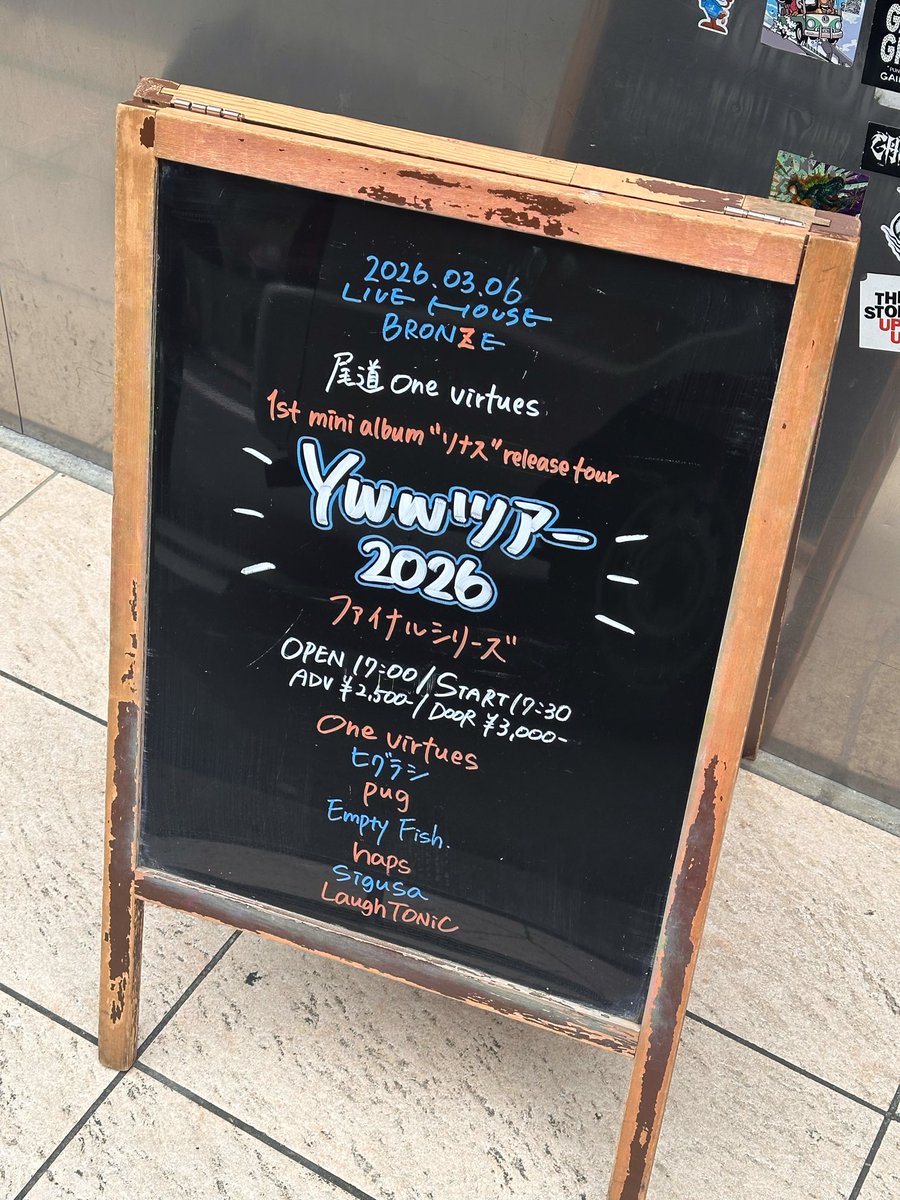 2026.03.06
LIVE HOUSE
BRONZE
尾道 One virtues
1st mini album "リナス" release tour
Ywwツアー
2026
ファイナルシリーズ
OPEN 17:00 / START 17:30
ADV ¥2,500- / DOOR ¥3,000-
One virtues
ヒグラシ
pug
Empty Fish.
haps
Sigusa
LaughTONiC